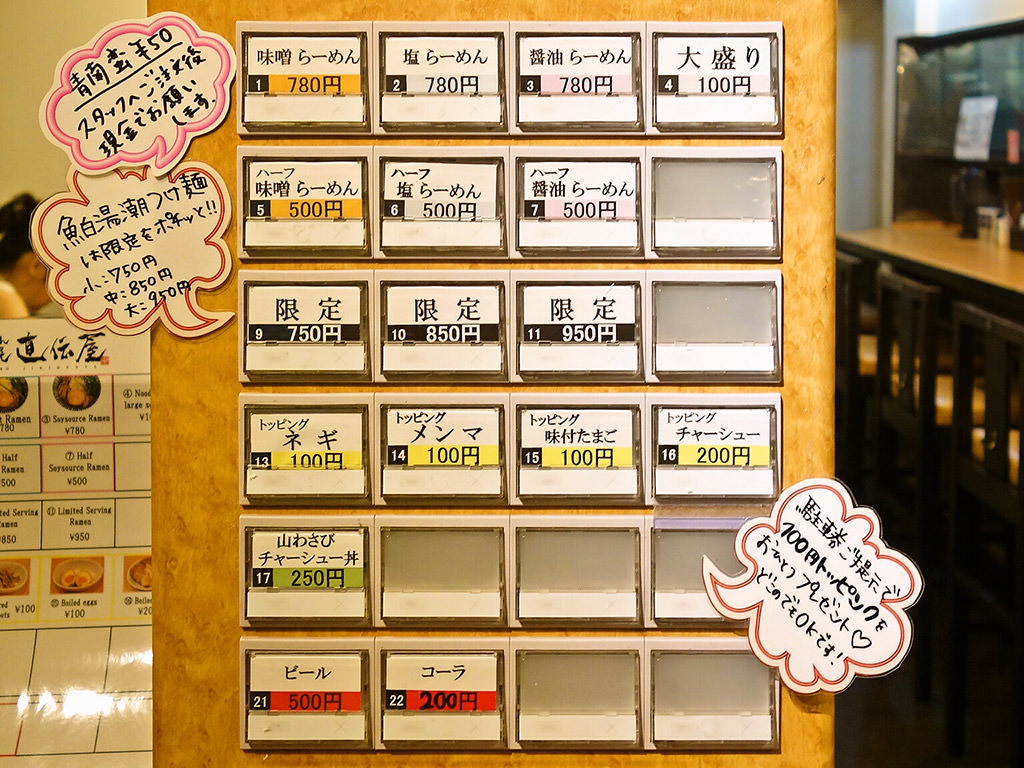 青南蛮 ¥50
スタッフへご注文後
現金でお願い
します。
魚白湯潮つけ麺
は限定をポチッと!!
小:750円
中:850円
大:950円
味噌らーめん
1 780円
塩らーめん
2 780円
醤油らーめん
3 780円
大盛り
4 100円
ハーフ
味噌らーめん
5 500円
ハーフ
塩らーめん
6 500円
ハーフ
醤油らーめん
7 500円
限定
9 750円
限定
10 850円
限定
11 950円
トッピング
ネギ
13 100円
トッピング
メンマ
14 100円
トッピング
味付たまご
15 100円
トッピング
チャーシュー
16 200円
山わさび
チャーシュー丼
17 250円
ビール
21 500円
コーラ
22 200円
駐車券ご提示で
100円トッピングを
おひとつプレゼント♡
どこのでもOKです!
直伝屋
Ramen
780
③ Soysource Ramen
¥780
Half
Ramen
500
⑦ Half
Soysource Ramen
¥500
Limited Serving
Ramen
¥850
⑪ Limited Serving
Ramen
¥950
¥100
⑮ Boiled eggs
¥100